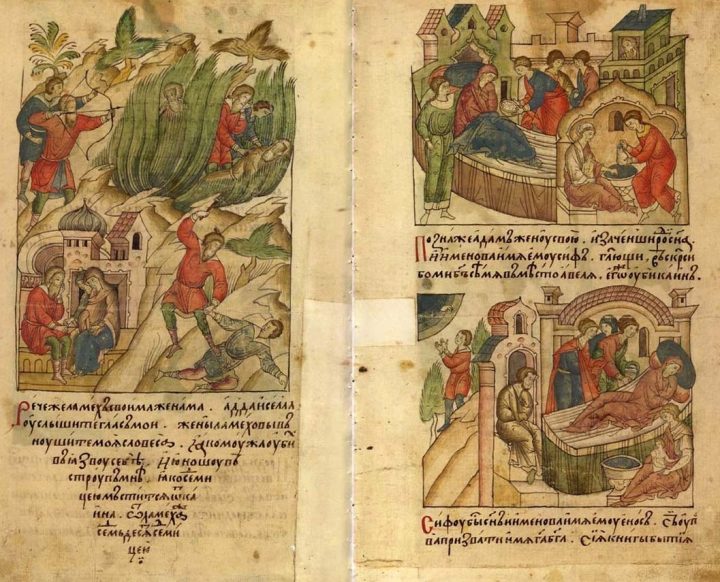 Рече же ламехъ своима женама . адда и селла
оуслышите гласъ мои . жены ламеховы в
ноушите моя словеса . яко моужа оуби
въ язвоу себѣ . и юношоу въ
строупъ мнѣ . яко семи
цею мьстится ѿ ка
ина . ѿ ламеха
семьдеся семи
цею
Позна же адамъ женоу свою . и заченши роди сна
и именова имя емоу сифъ . глющи . въскреси
бо ми бъ семя въмѣсто авеля . егоже оуби каинъ .
Сифоу бысть снъ и именова имя емоу еносъ . съ оупо
ва призвати имя га бга . сия книгы бытия